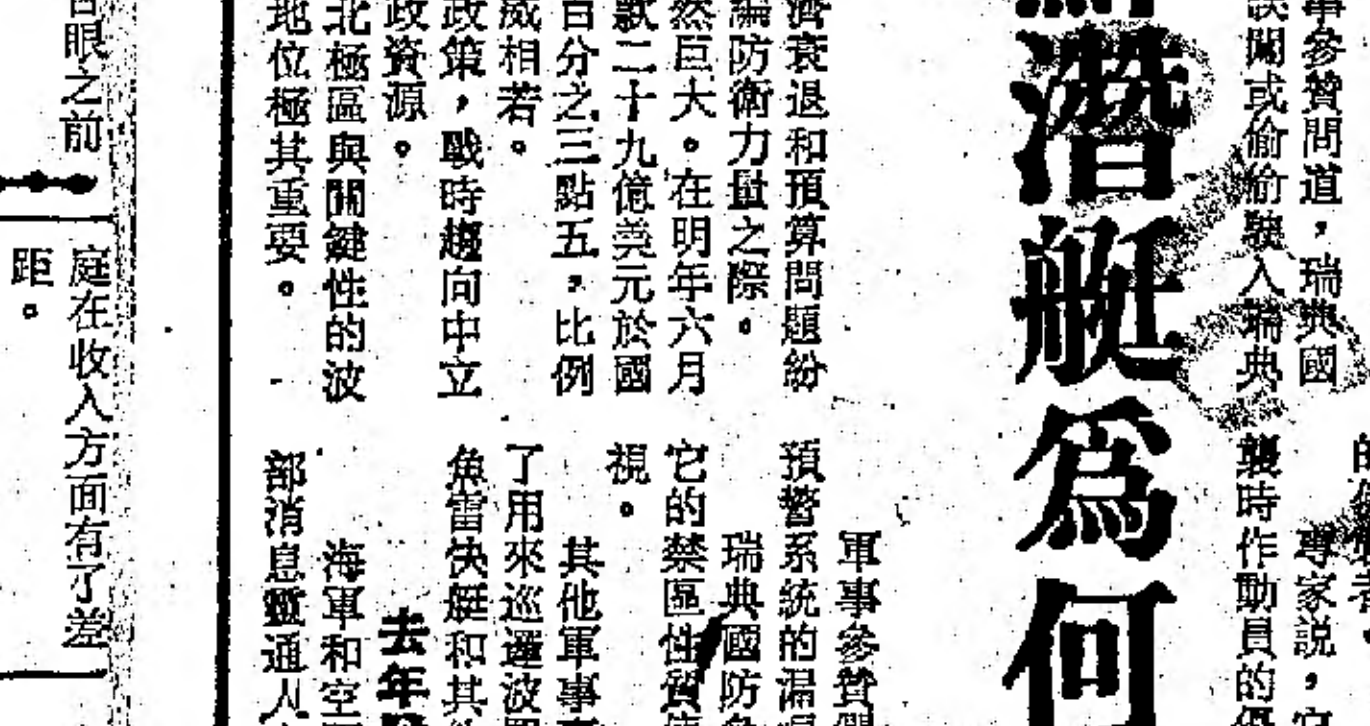 事參贊問道，瑞典國
誤闖或偷偷駛入瑞典
專家説，它
襲時作動員的
潛艇爲何
濟衰退和預算問題紛
編防衛力量之際。
然巨大。在明年六月
款二十九億美元於國
百分之三點五，比例
威相若。
政策，戰時趨向中立
政資源。
北極區與關鍵性的波
地位極其重要。
軍事參贊們
預警系統的漏
瑞典國防
它的禁區性質使
視。
其他軍事專
了用來巡邏波
魚雷快艇和其
去年
海軍和空
部消息靈通人
眼之前
庭在收入方面有了差
距。